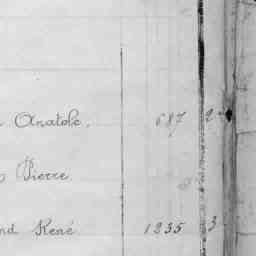 Anatole. 687 2
Pierre
nd René 1235 3